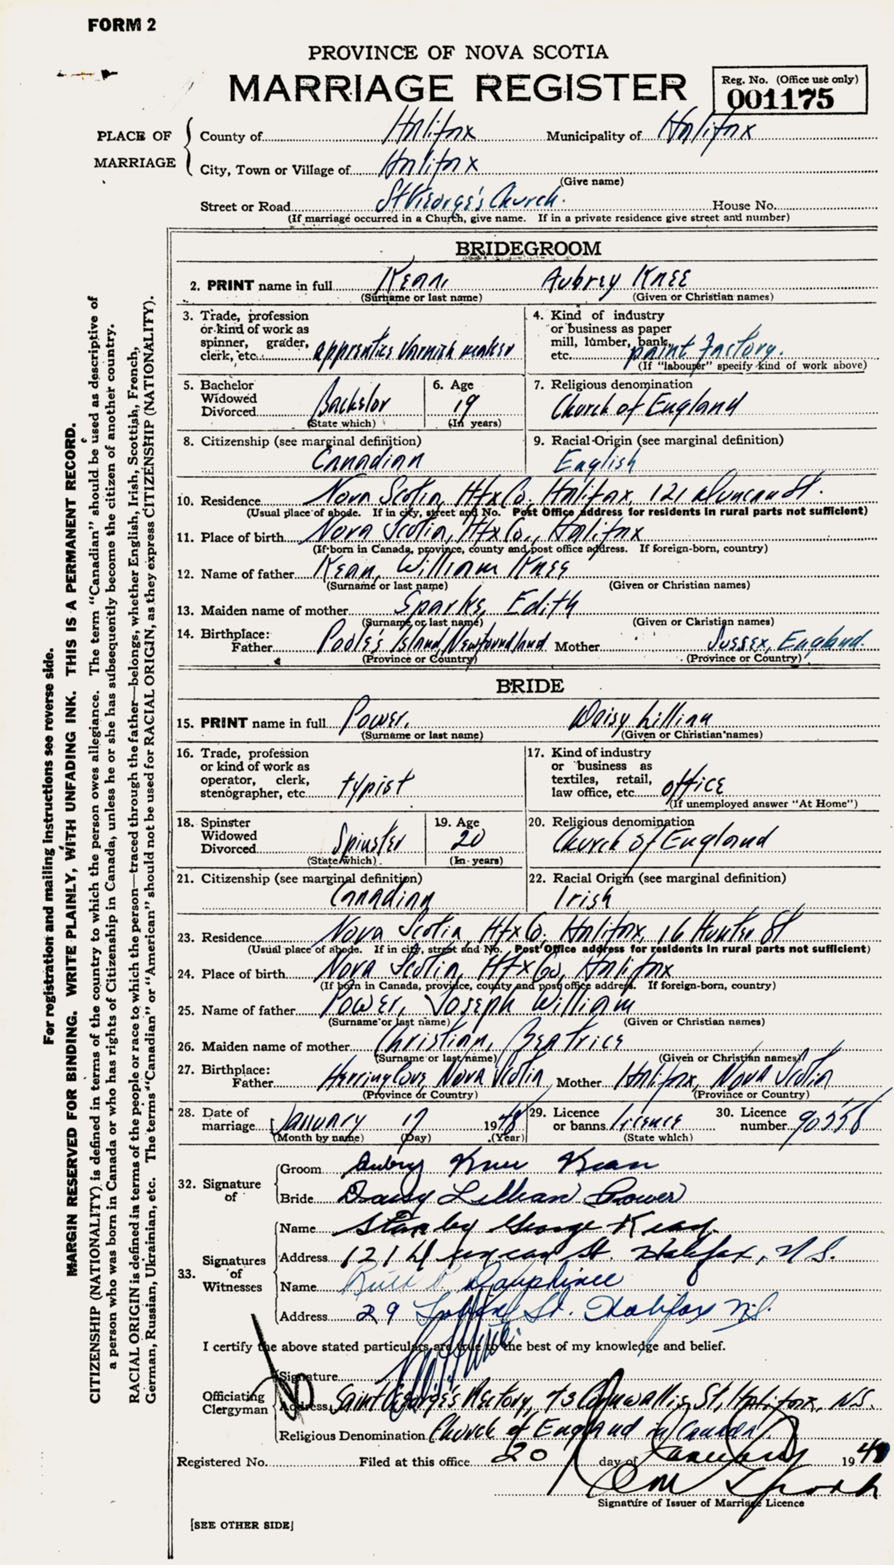 FORM 2
PROVINCE OF NOVA SCOTIA
MARRIAGE REGISTER
Reg. No. (Office use only)
001175
PLACE OF MARRIAGE
County of Halifax Municipality of Halifax
City, Town or Village of Halifax
(Give name)
Street or Road St George's Church. House No.
(If marriage occurred in a Church, give name. If in a private residence give street and number)
BRIDEGROOM
2. PRINT name in full Kean, Aubrey Knee
(Surname or last name) (Given or Christian names)
3. Trade, profession or kind of work as spinner, grader, clerk, etc. apprentice varnish maker
4. Kind of industry or business as paper mill, lumber, bank, etc. paint factory.
(If "labourer" specify kind of work above)
5. Bachelor Widowed Divorced Bachelor
(State which)
6. Age 19
(In years)
7. Religious denomination
Church of England
8. Citizenship (see marginal definition)
Canadian
9. Racial Origin (see marginal definition)
English
10. Residence Nova Scotia, Hfx Co, Halifax, 121 Duncan St.
(Usual place of abode. If in city, street and No. Post Office address for residents in rural parts not sufficient)
11. Place of birth Nova Scotia, Hfx Co., Halifax
(If born in Canada, province, county and post office address. If foreign-born, country)
12. Name of father Kean, William Knee
(Surname or last name) (Given or Christian names)
13. Maiden name of mother Sparks, Edith
(Surname or last name) (Given or Christian names)
14. Birthplace:
Father Poole's Island, Newfoundland Mother Sussex, England.
(Province or Country) (Province or Country)
BRIDE
15. PRINT name in full Power, Daisy Lillian
(Surname or last name) (Given or Christian names)
16. Trade, profession or kind of work as operator, clerk, stenographer, etc typist
17. Kind of industry or business as textiles, retail, law office, etc. office
(If unemployed answer "At Home")
18. Spinster Widowed Divorced Spinster
(State which)
19. Age 20
(In years)
20. Religious denomination
Church of England
21. Citizenship (see marginal definition)
Canadian
22. Racial Origin (see marginal definition)
Irish
23. Residence Nova Scotia, Hfx Co, Halifax, 16 Hunter St
(Usual place of abode. If in city, street and No. Post Office address for residents in rural parts not sufficient)
24. Place of birth Nova Scotia, Hfx Co, Halifax
(If born in Canada, province, county and post office address. If foreign-born, country)
25. Name of father Power, Joseph William
(Surname or last name) (Given or Christian names)
26. Maiden name of mother Christian, Beatrice
(Surname or last name) (Given or Christian names)
27. Birthplace:
Father Herring Cove, Nova Scotia Mother Halifax, Nova Scotia
(Province or Country) (Province or Country)
28. Date of marriage January 17 1948
(Month by name) (Day) (Year)
29. Licence or banns licence
(State which)
30. Licence number 90556
32. Signature of
Groom Aubrey Knee Kean
Bride Daisy Lillian Power
33. Signatures of Witnesses
Name Stanley George Kean.
Address 121 Duncan St. Halifax, N.S.
Name Ruth Dauphinee
Address 29 St. Halifax N.S.
I certify the above stated particulars are true to the best of my knowledge and belief.
Officiating Clergyman
Signature
Address Saint George's Rectory, 73 Cornwallis St, Halifax, N.S.
Religious Denomination Church of England in Canada
Registered No. Filed at this office 20 day of January 1948
Signature of Issuer of Marriage Licence
[SEE OTHER SIDE]
For registration and mailing instructions see reverse side.
MARGIN RESERVED FOR BINDING. WRITE PLAINLY, WITH UNFADING INK. THIS IS A PERMANENT RECORD.
CITIZENSHIP (NATIONALITY) is defined in terms of the country to which the person owes allegiance. The term "Canadian" should be used as descriptive of
a person who was born in Canada or who has rights of Citizenship in Canada, unless he or she has subsequently become the citizen of another country.
RACIAL ORIGIN is defined in terms of the people or race to which the person—traced through the father—belongs, whether English, Irish, Scottish, French,
German, Russian, Ukrainian, etc. The terms "Canadian" or "American" should not be used for RACIAL ORIGIN, as they express CITIZENSHIP (NATIONALITY).